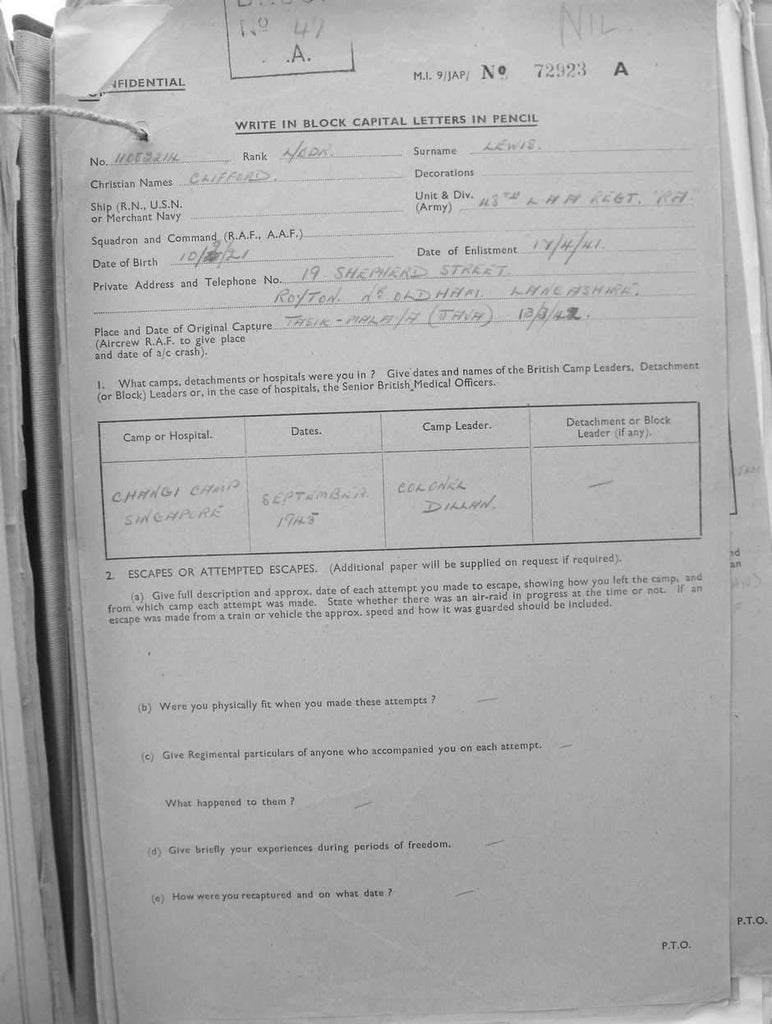 Nº 47
NIL
.A.
M.I. 9/JAP/ Nº 72923 A
NFIDENTIAL
WRITE IN BLOCK CAPITAL LETTERS IN PENCIL
No. Rank L/BDR. Surname LEWIS.
Christian Names CLIFFORD. Decorations
Ship (R.N., U.S.N. or Merchant Navy
Unit & Div. (Army) 48TH L A A REGT. "RA"
Squadron and Command (R.A.F., A.A.F.)
Date of Birth 10/ /21 Date of Enlistment 17/4/41.
Private Address and Telephone No. 19 SHEPHERD STREET.
ROYTON. Nr OLDHAM. LANCASHIRE.
Place and Date of Original Capture TASIK-MALAYA (JAVA) 13/3/42.
(Aircrew R.A.F. to give place
and date of a/c crash).
1. What camps, detachments or hospitals were you in ? Give dates and names of the British Camp Leaders, Detachment
(or Block) Leaders or, in the case of hospitals, the Senior British Medical Officers.
Camp or Hospital. Dates. Camp Leader. Detachment or Block Leader (if any).
CHANGI CAMP SEPTEMBER COLONEL —
SINGAPORE 1945 DILLAN.
2. ESCAPES OR ATTEMPTED ESCAPES. (Additional paper will be supplied on request if required).
(a) Give full description and approx. date of each attempt you made to escape, showing how you left the camp, and
from which camp each attempt was made. State whether there was an air-raid in progress at the time or not. If an
escape was made from a train or vehicle the approx. speed and how it was guarded should be included.
(b) Were you physically fit when you made these attempts ? —
(c) Give Regimental particulars of anyone who accompanied you on each attempt. —
What happened to them ? —
(d) Give briefly your experiences during periods of freedom. —
(e) How were you recaptured and on what date ? —
P.T.O.
P.T.O.